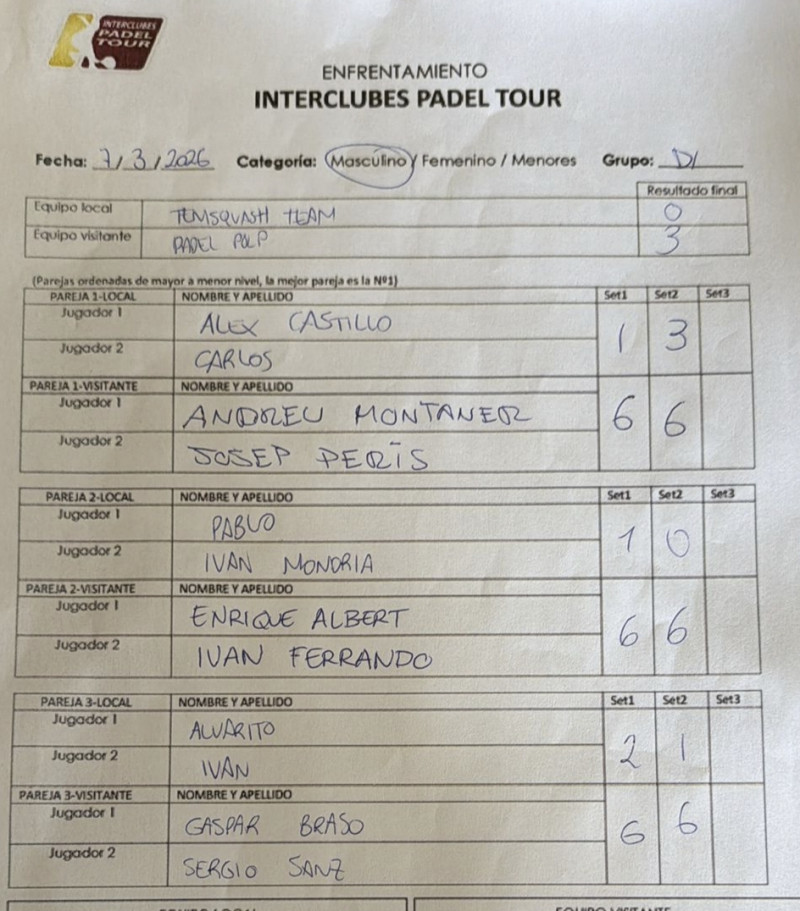 INTERCLUBES
PADEL
TOUR
ENFRENTAMIENTO
INTERCLUBES PADEL TOUR
Fecha: 7/3/2026 Categoría: Masculino / Femenino / Menores Grupo: D1
Resultado final
Equipo local TEMSQUASH TEAM 0
Equipo visitante PADEL POLP 3
(Parejas ordenadas de mayor a menor nivel, la mejor pareja es la Nº1)
PAREJA 1-LOCAL NOMBRE Y APELLIDO Set1 Set2 Set3
Jugador 1 ALEX CASTILLO 1 3
Jugador 2 CARLOS
PAREJA 1-VISITANTE NOMBRE Y APELLIDO
Jugador 1 ANDREU MONTANER 6 6
Jugador 2 JOSEP PERIS
PAREJA 2-LOCAL NOMBRE Y APELLIDO Set1 Set2 Set3
Jugador 1 PABLO 1 0
Jugador 2 IVAN MONORIA
PAREJA 2-VISITANTE NOMBRE Y APELLIDO
Jugador 1 ENRIQUE ALBERT 6 6
Jugador 2 IVAN FERRANDO
PAREJA 3-LOCAL NOMBRE Y APELLIDO Set1 Set2 Set3
Jugador 1 ALVARITO 2 1
Jugador 2 IVAN
PAREJA 3-VISITANTE NOMBRE Y APELLIDO
Jugador 1 GASPAR BRASO 6 6
Jugador 2 SERGIO SANZ